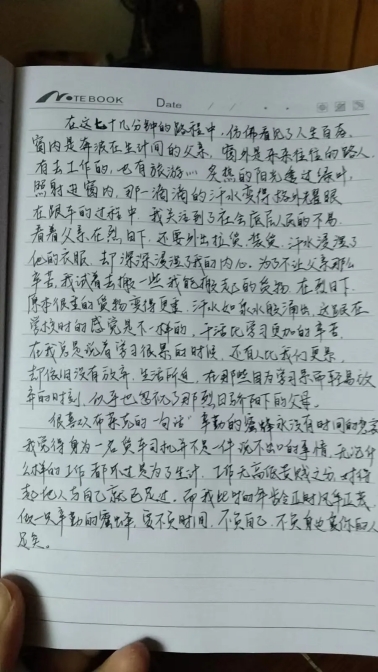 NOTEBOOK Date
在这七十几分钟的路程中，仿佛看见了人生百态。
窗内是奔波在生计间的父亲，窗外是来来往往的路人
有去工作的，也有旅游…… 炙热的阳光透过绿叶，
照射进窗内，那一滴滴的汗水变得格外耀眼
在跟车的过程中，我关注到了社会底层人民的不易
看着父亲在烈日下，还要外出拉货、装货，汗水浸湿了
他的衣服，却深深浸湿了我的内心。为了不让父亲那么
辛苦，我试着去搬一些我能搬起的货物，在烈日下，
原本很重的货物变得更重，汗水如泉水般涌出，这跟在
学校时的感觉是不一样的，干活比学习更加的辛苦。
在我总是说着学习很累的时候，还有人比我们更累，
却依旧没有放弃，生活所迫，在那些因为学习累而轻易放
弃的时刻，似乎也忽视了那烈日骄阳下的父辈。
很喜欢布莱克的一句话"辛勤的蜜蜂永没有时间的悲哀
我觉得身为一名货车司机并不是一件说不出口的事情，无论什
么样的工作都不过是为了生计，工作无高低贵贱之分，对得
起他人与自己就已足过，而我此时的年龄正时风华正茂，
做一只辛勤的蜜蜂，要不负时间，不负自己，不负身边爱你的人
足矣。